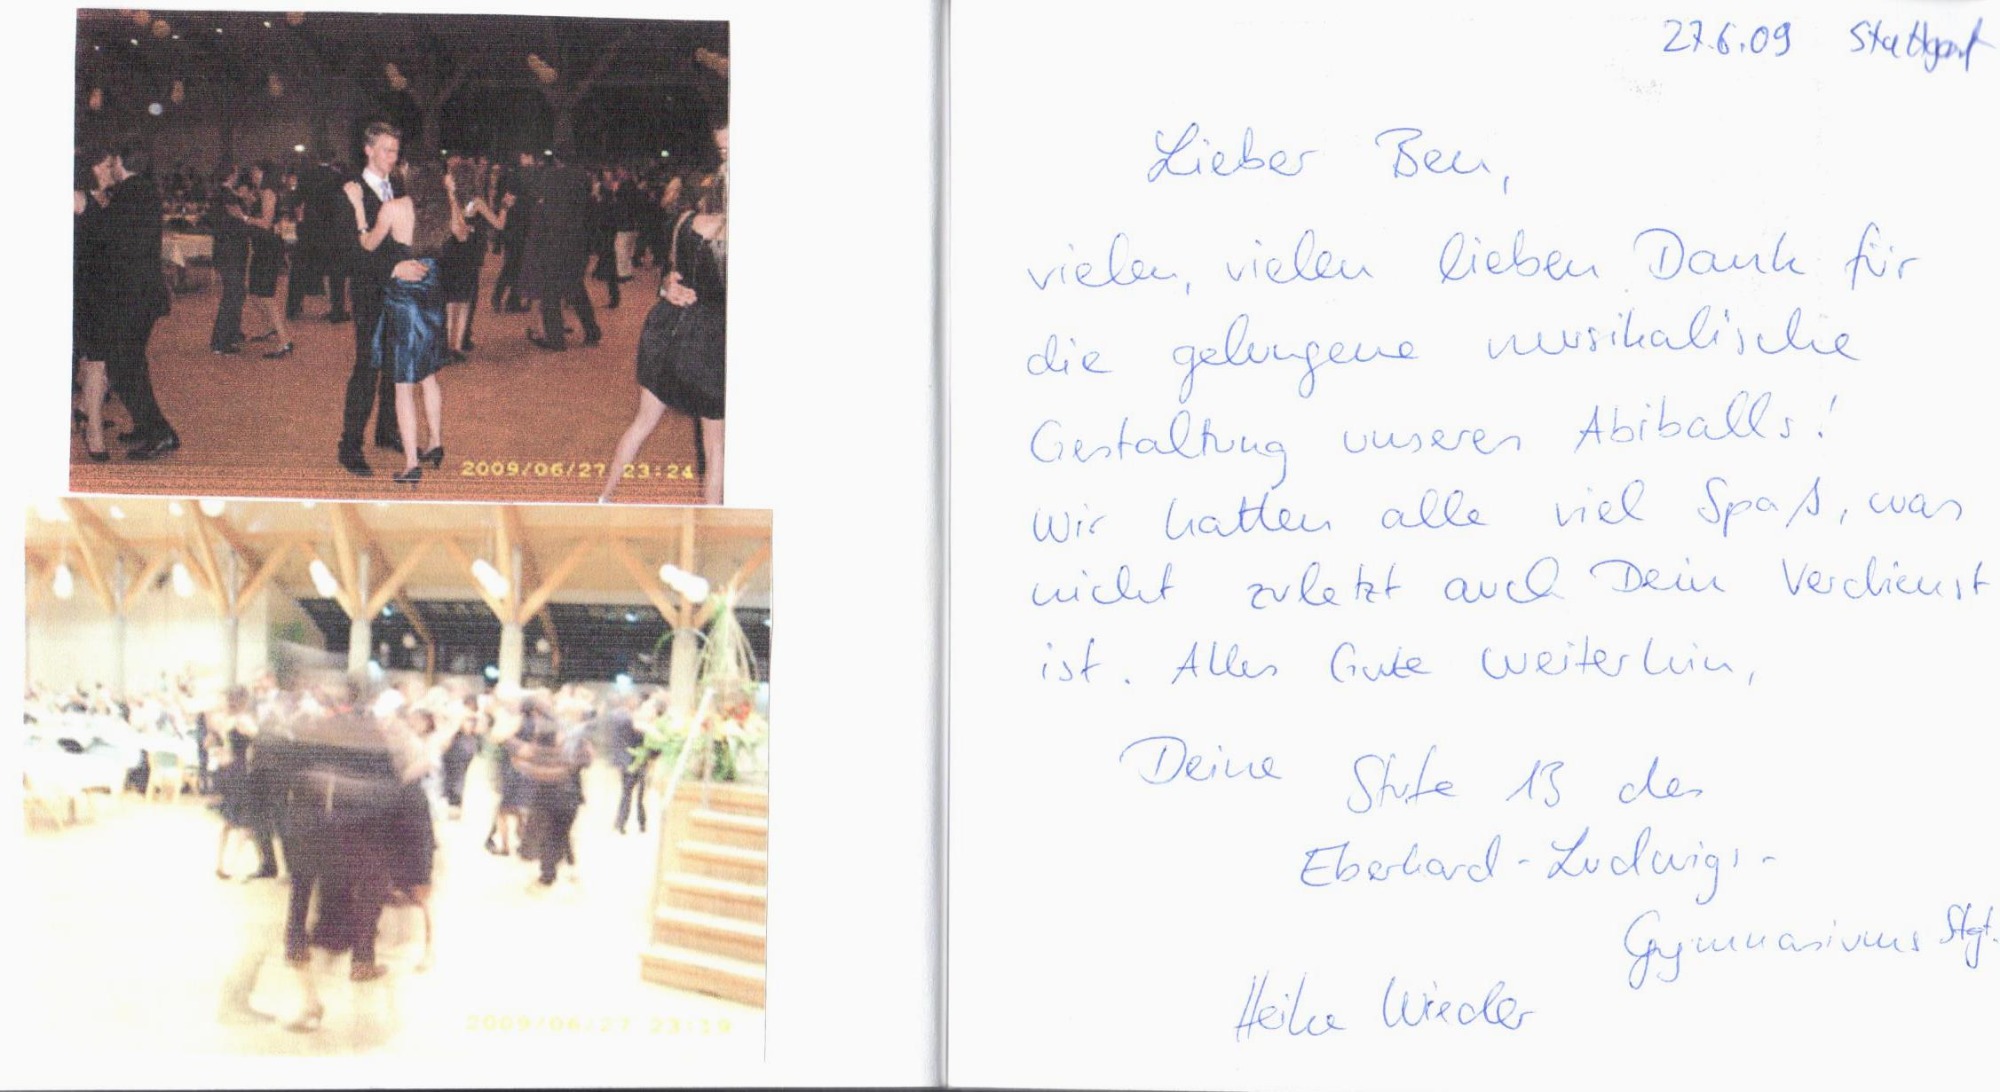 2009/06/27 23:24
2009/06/27 23:19
27.6.09 Stuttgart
Lieber Ben,
vielen, vielen lieben Dank für
die gelungene musikalische
Gestaltung unseres Abiballs!
Wir hatten alle viel Spaß, was
nicht zuletzt auch Dein Verdienst
ist. Alles Gute weiterhin,
Deine Stufe 13 des
Eberhard-Ludwigs-
Gymnasiums Stgt.
Heike Wieder